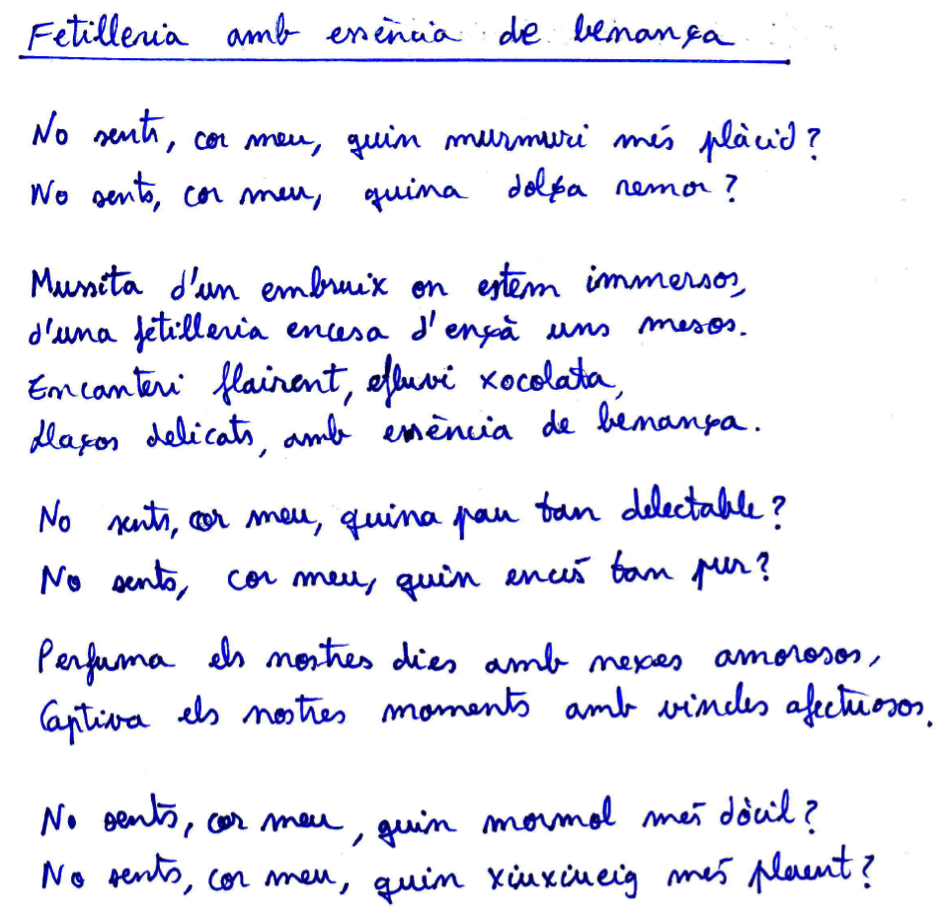 Fetilleria amb essència de benança
No sents, cor meu, quin murmuri més plàcid?
No sents, cor meu, quina dolça remor?
Mussita d'un embruix on estem immersos,
d'una fetilleria encesa d'ençà uns mesos.
Encanteri flairent, efluvi xocolata,
llaços delicats, amb essència de benança.
No sents, cor meu, quina pau tan delectable?
No sents, cor meu, quin encís tan pur?
Perfuma els nostres dies amb nexes amorosos,
Captiva els nostres moments amb vincles afectuosos.
No sents, cor meu, quin mormol més dòcil?
No sents, cor meu, quin xiuxiueig més plaent?